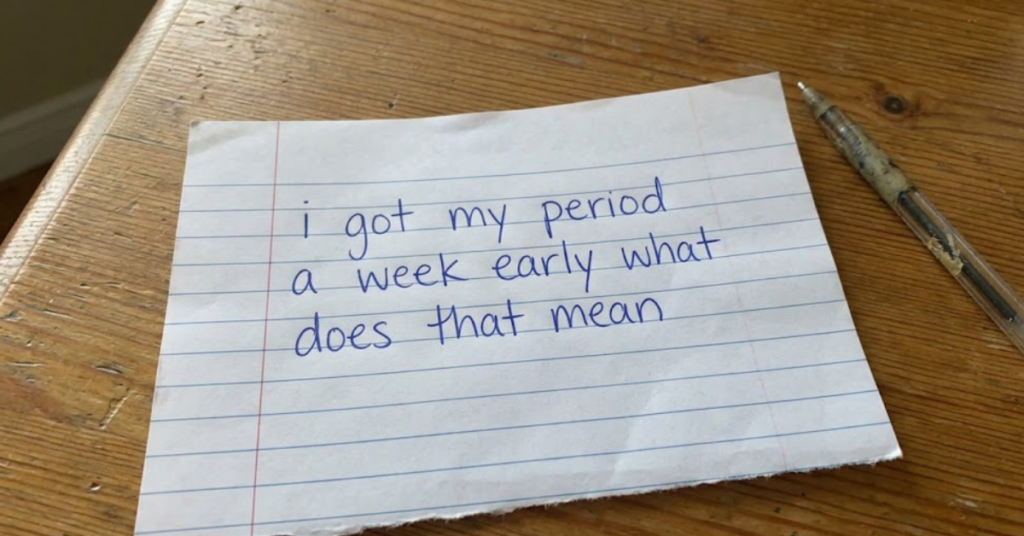 i got my period
a week early what
does that mean